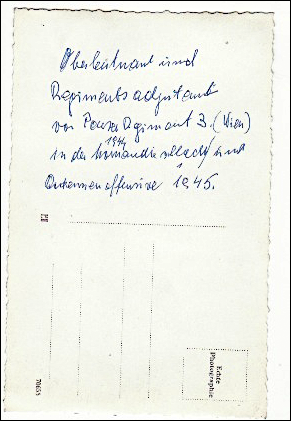 Oberleutnant und
Regimentsadjutant
von Panzer Regiment 3. (Wien)
1944
in der Normandieschlacht und
Ardennenoffensive 1945.
Echte
Photographie